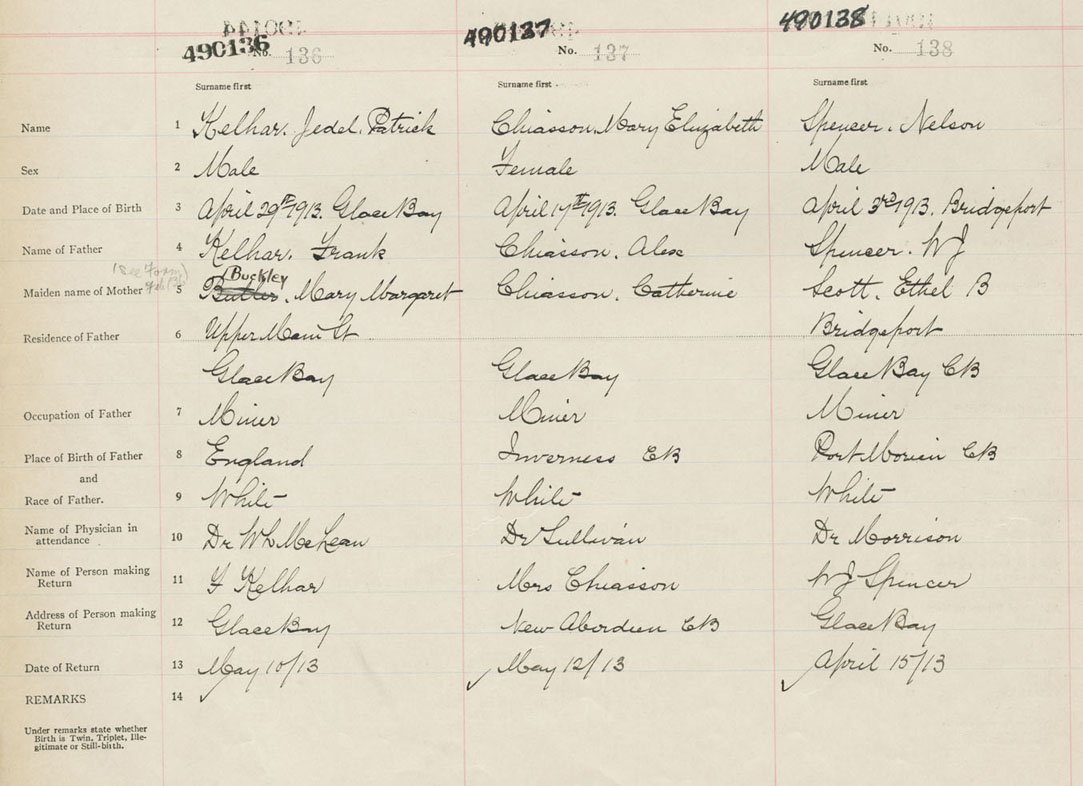 490136 490137 490138
No. 136 No. 137 No. 138
Surname first Surname first Surname first
Name 1 Kelhar. Jedel. Patrick Chiasson. Mary Elizabeth Spencer. Nelson
Sex 2 Male Female Male
Date and Place of Birth 3 April 29th 1913. Glace Bay April 17th 1913. Glace Bay April 3rd 1913. Bridgeport
Name of Father 4 Kelhar. Frank Chiasson. Alex Spencer. W J
(see Form
(Buckley
Maiden name of Mother 5 Butler. Mary Margaret Chiasson. Catherine Scott. Ethel B
Residence of Father 6 Upper Main St Bridgeport
Glace Bay Glace Bay Glace Bay CB
Occupation of Father 7 Miner Miner Miner
Place of Birth of Father 8 England Inverness CB Port Morien CB
and
Race of Father. 9 White White White
Name of Physician in
attendance 10 Dr Wh McLean Dr Sullivan Dr Morrison
Name of Person making
Return 11 F Kelhar Mrs Chiasson W J Spencer
Address of Person making
Return 12 Glace Bay New Aberdeen CB Glace Bay
Date of Return 13 May 10/13 May 12/13 April 15/13
REMARKS 14
Under remarks state whether
Birth is Twin, Triplet, Ille-
gitimate or Still-birth.